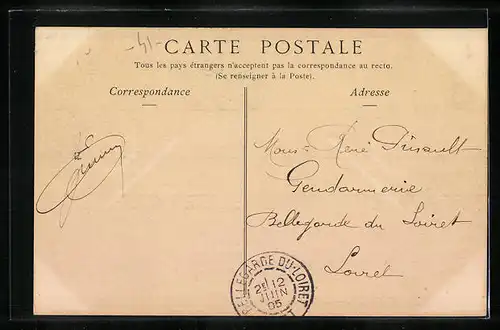 -41-
CARTE POSTALE
Tous les pays étrangers n'acceptent pas la correspondance au recto.
(Se renseigner à la Poste).
Correspondance
Adresse
Mons. René
Gendarmerie
Bellegarde du Loiret
Loiret
BELLEGARDE DU LOIRET
2E 12
JUIN
05